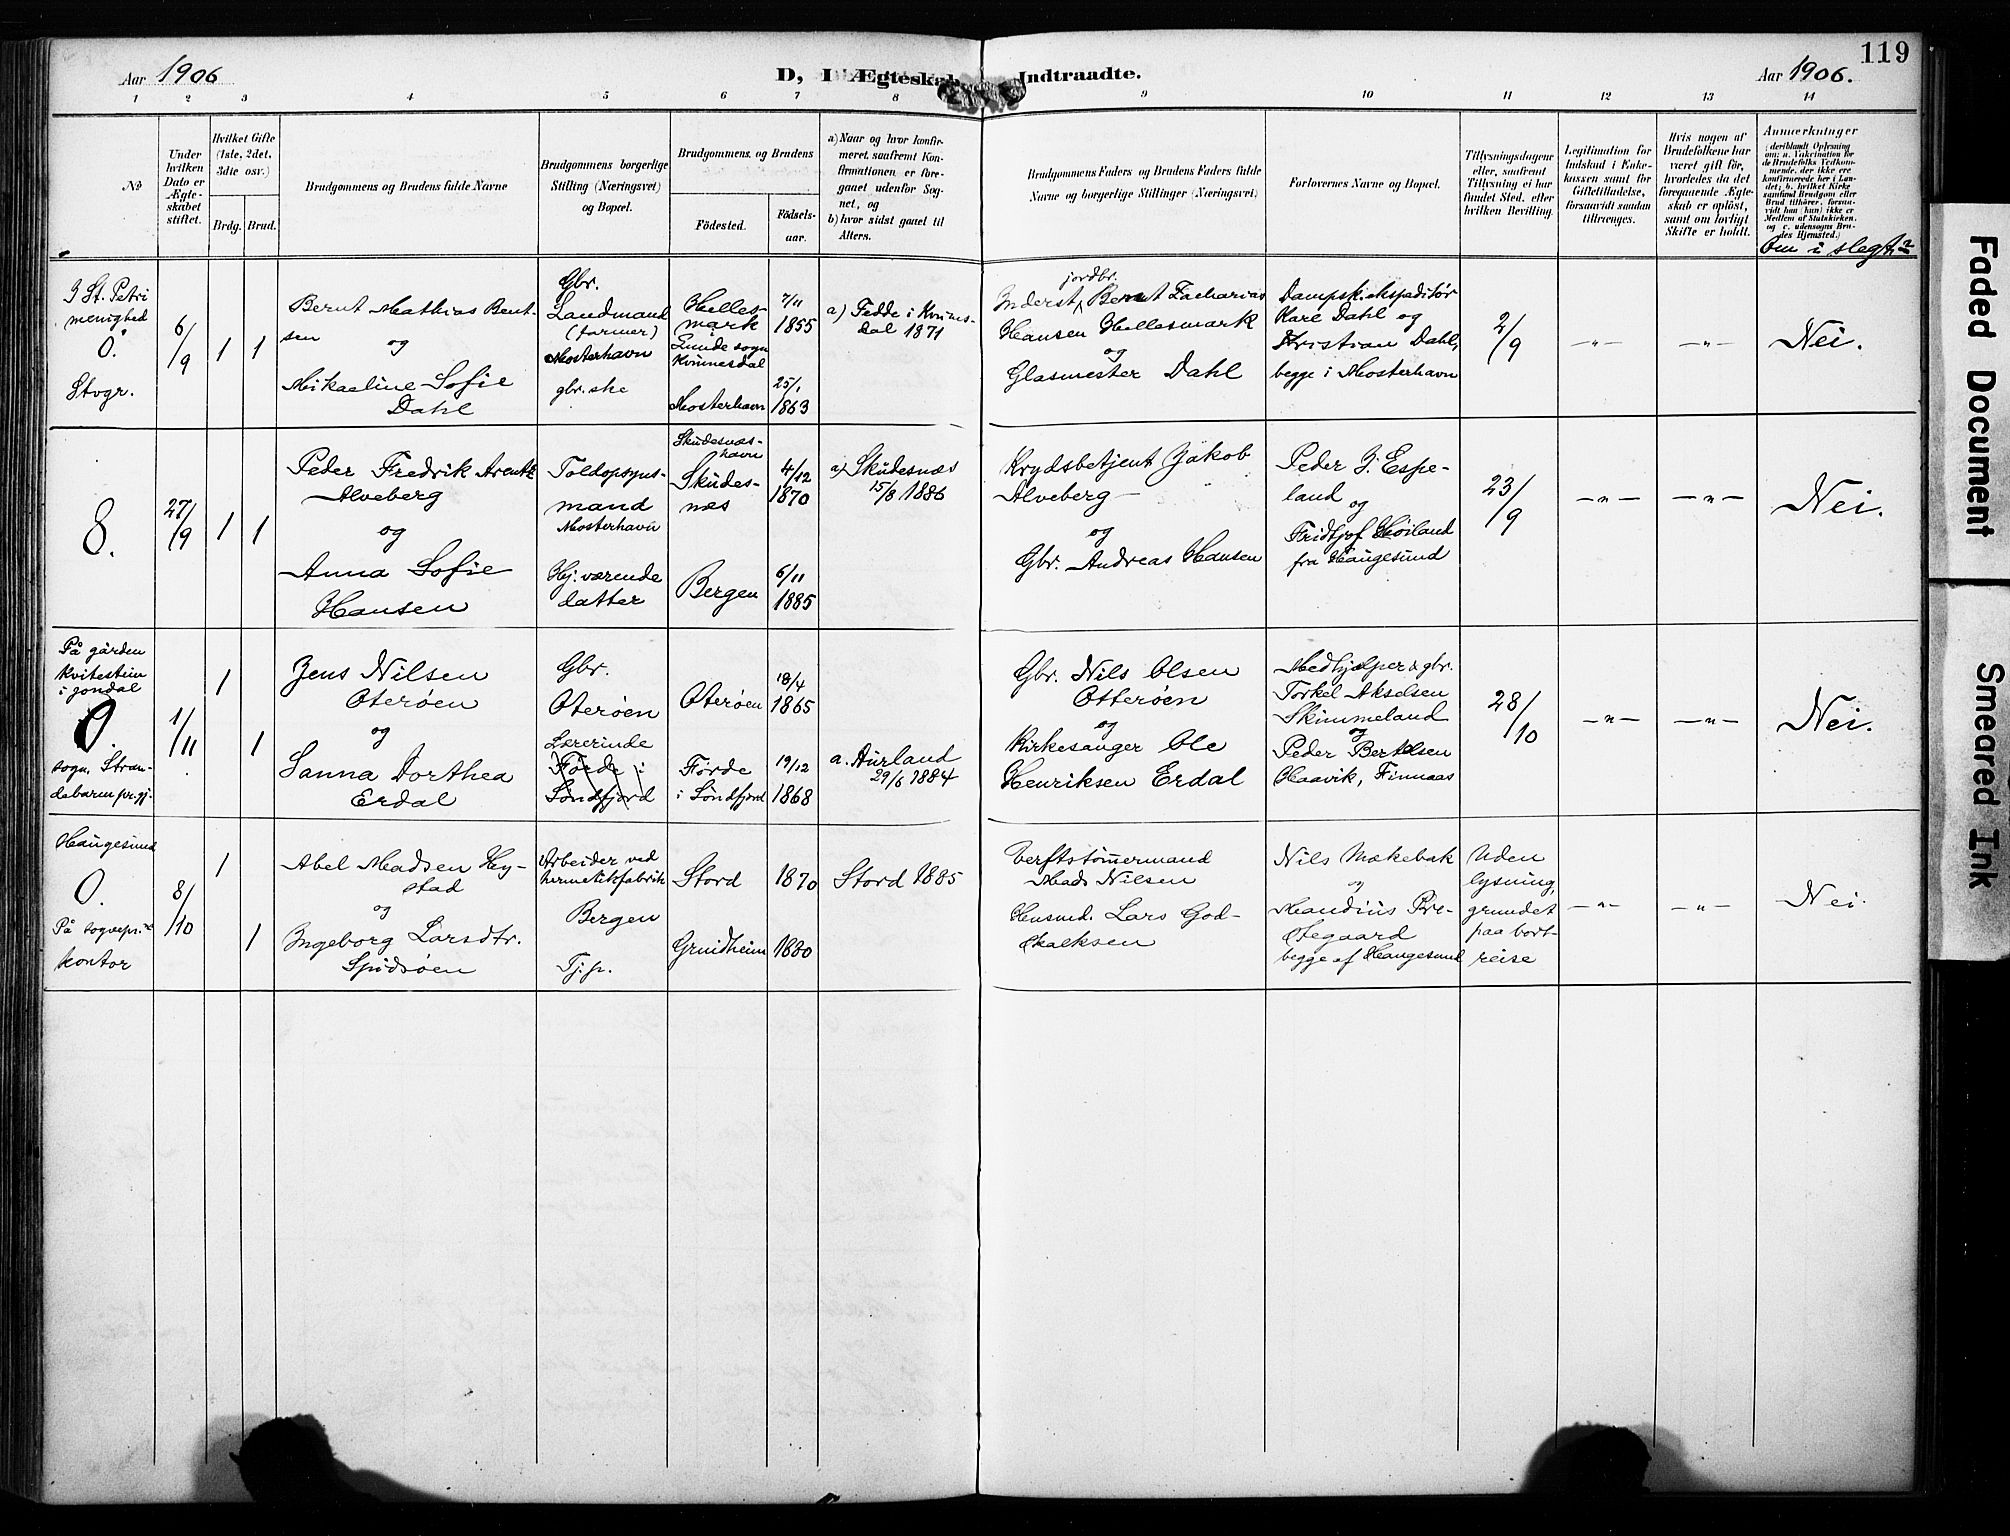 119
Aar 1906
D, I Ægteskab
Indtraadte.
Aar 1906.
1 2 3 4 5 6 7 8 9 10 11 12 13 14
No
Under
hvilken
Dato er
Ægte-
skabet
stiftet.
Hvilket Gifte
(1ste, 2det,
3die osv.)
Brdg. Brud.
Brudgommens og Brudens fulde Navne
Brudgommens borgerlige
Stilling (Næringsvei)
og Bopæl.
Brudgommens og Brudens
Födested.
Födsels-
aar.
a) Naar og hvor konfir-
meret, saafremt Kon-
firmationen er fore-
gaaet udenfor Sog-
net, og
b) hvor sidst gaaet til
Alters.
Brudgommens Faders og Brudens Faders fulde
Navne og borgerlige Stillinger (Næringsvei)
Forlovernes Navne og Bopæl.
Tillysningsdagene
eller, saafremt
Tillysning ei har
fundet Sted, efter
hvilken Bevilling.
Legitimation for
Indskud i Enke-
kassen samt for
Giftetilladelse,
forsaavidt saadan
tiltrænges.
Hvis nogen af
Brudefolkene har
været gift för,
hvorledes da det
foregaaende Ægte-
skab er oplöst,
samt om lovligt
Skifte er holdt.
Anmærkninger
(deriblandt Oplysning
om: a. Vakcination for
de Brudefolks Vedkom-
mende, der ikke ere
konfirmerede her i Lan-
det; b. hvilket Kirke-
samfund Brudgom eller
Brud tilhörer, forsaa-
vidt han (hun) ikke er
Medlem af Statskirken,
og c. udensogns Bru-
des Hjemsted.)
Om i slegt?
I St. Petri
menighed
O.
Stvgr.
6/9
1 1
Bernt Mathias Bent-
sen
og
Mikaeline Sofie
Dahl
Gbr.
Landmand
(farmer)
Mosterhavn
gbr. ske
Helles-
mark
Lunde sogn
Kvinnesdal
Mosterhavn
7/11
1855
25/1
1863
a) Fedde i Kvines-
dal 1871
jordbr.
Inderst, Bernt Zacharias
Hansen Hellesmark
og
Glasmester Dahl
Dampsk.ekspeditör
Kare Dahl og
Kristian Dahl,
begge i Mosterhavn
2/9
—„—
—„—
Nei.
8.
27/9
1 1
Peder Fredrik Arentz
Alveberg
og
Anna Sofie
Hansen
Toldopsyns-
mand
Mosterhavn
Hj. værende
datter
Skudesnæs-
havn
Skudes-
næs
Bergen
4/12
1870
6/11
1885
a) Skudesnæs
15/8 1886
Krydsbetjent Jakob
Alveberg —
og
Gbr. Andreas Hansen
Peder J. Espe-
land
og
Fridtjof Höiland
fra Haugesund
23/9
—„—
—„—
Nei.
På gården
Kvitestein
i Jondal
O.
sogn, Stran-
debarm pr.gj.
1/11
1
1
Jens Nilsen
Oteröen
og
Sanna Dorthea
Erdal
Gbr.
Oteröen
Lærerinde
Förde i
Söndfjord
Oteröen
Förde
i Söndfjord
18/4
1865
19/12
1868
a. Aurland
29/6 1884
Gbr. Nils Olsen
Otteröen
og
Kirkesanger Ole
Henriksen Erdal
Medhjælper & gbr.
Torkel Akselsen
Skimmeland
og
Peder Bertelsen
Haavik, Finnaas
28/10
—„—
—„—
Nei.
Haugesund
O.
På sognepr.s
kontor
8/10
1
1
Abel Madsen Hy-
stad
og
Ingeborg Larsdtr.
Spidsöen
Arbeider ved
hermetikfabrik
Bergen
Tj.p.
Stord
Grindheim
1870
1880
Stord 1885
Verftstömermand
Mads Nilsen
Husmd. Lars God-
skalksen
Nils Mækebak
og
Mandius Pre-
stegaard
begge af Haugesund
Uden
lysning,
grundet
paa bort-
reise
—„—
—„—
Nei.
Faded Document
Smeared Ink